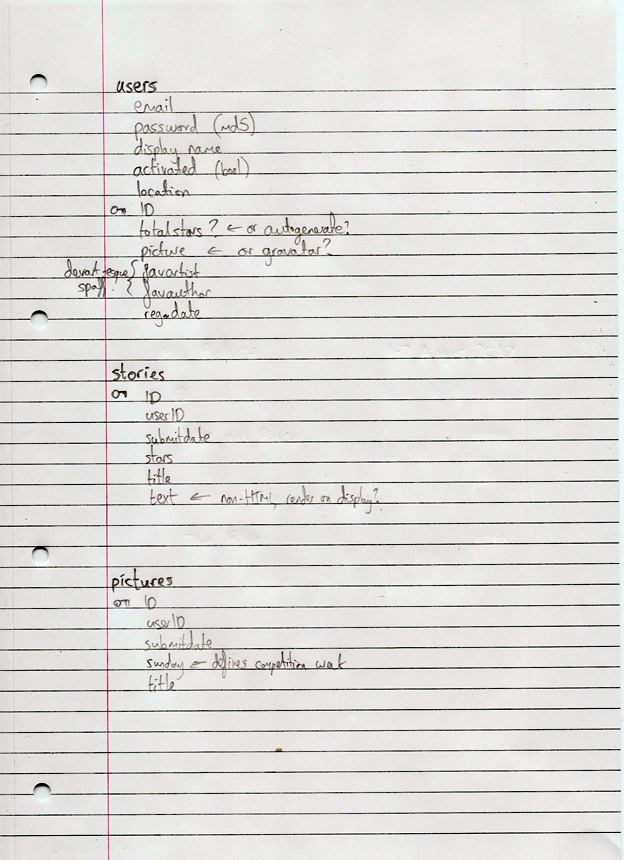 users
email
password (md5)
display name
activated (bool)
location
ID
totalstars? ← or autogenerate?
picture ← or gravatar?
devart-esque { favartist
{ favauthor
reg.date
stories
ID
userID
submitdate
stars
title
text ← non-HTML, render on display?
pictures
ID
userID
submitdate
sunday ← defines competition week
title